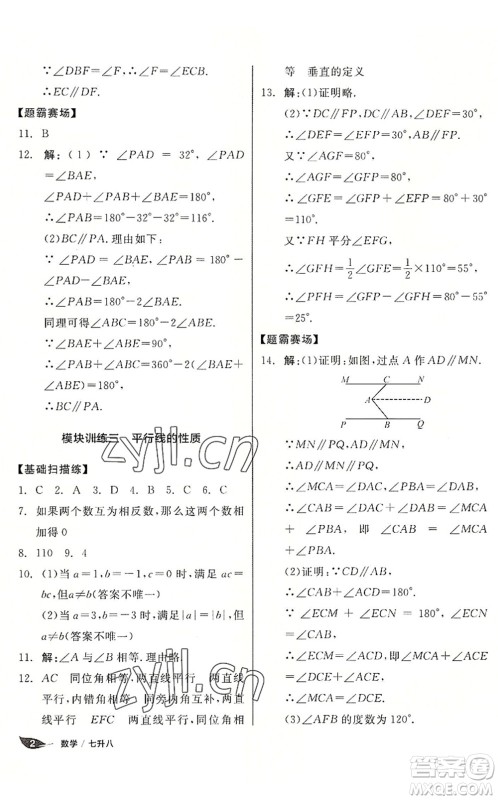 ∵∠DBF=∠F,∴∠ECF=∠F.
∴EC∥DF.
【题霸赛场】
11. B
12. 解:(1)∵∠PAD=32°,∠PAD
=∠BAE,
∠PAD+∠PAB+∠BAE=180°,
∴∠PAB=180°-32°-32°=116°.
(2)BC∥PA.理由如下:
∵∠PAD=∠BAE,∠PAB=180°
-∠PAD-∠BAE,
∴∠PAB=180°-2∠BAE.
同理可得∠ABC=180°-2∠ABE.
∵∠BAE+∠ABE=90°,
∴∠PAB+∠ABC=360°-2(∠BAE
+∠ABE)=180°.
∴BC∥PA.
模块训练三 平行线的性质
【基础扫描练】
1. C 2. A 3. D 4. B 5. C 6. C
7. 如果两个数互为相反数,那么这两个数相
加得0
8. 110 9. 4
10. (1)当a=1,b=-1,c=0时,ac=bc,
但a≠b(答案不唯一)
(2)当a=3,b=-3时,满足|a|=|b|,
但a≠b(答案不唯一)
11. 解:∠A与∠B相等.理由略.
12. AC 同位角相等,两直线平行 两直线
平行,内错角相等 等量代换 两直线平
行 EFC 两直线平行,同位角相
2 数学/七升八
等 垂直的定义
13. 解:(1)证明略.
(2)∵DC∥FP,DC∥AB,∠DEF=30°,
∴∠DEF=∠EFP=30°,AB∥FP.
又∵∠AGF=80°,
∴∠AGF=∠GFP=80°.
∴∠GFE=∠GFP+∠EFP=80°+
30°=110°.
又∵FH平分∠EFG,
∴∠GFH=1/2∠GFE=1/2×110°=55°,
∴∠PFH=∠GFP-∠GFH=80°-55°
=25°.
【题霸赛场】
14. 解:(1)证明:如图,过点A作AD∥MN.
M C N
A D
P B Q
∵MN∥PQ,AD∥MN,
∴AD∥MN∥PQ.
∴∠MCA=∠DAC,∠PBA=∠DAB.
∴∠CAB=∠DAC+∠DAB=∠MCA
+∠PBA,即∠CAB=∠MCA+
∠PBA.
(2)证明:∵CD∥AB,
∴∠CAB+∠ACD=180°.
∵∠ECM+∠ECN=180°,∠ECN
=∠CAB,
∴∠ECM=∠ACD,即∠MCA+∠ACE
=∠DCE+∠ACE.
∴∠MCA=∠DCE.